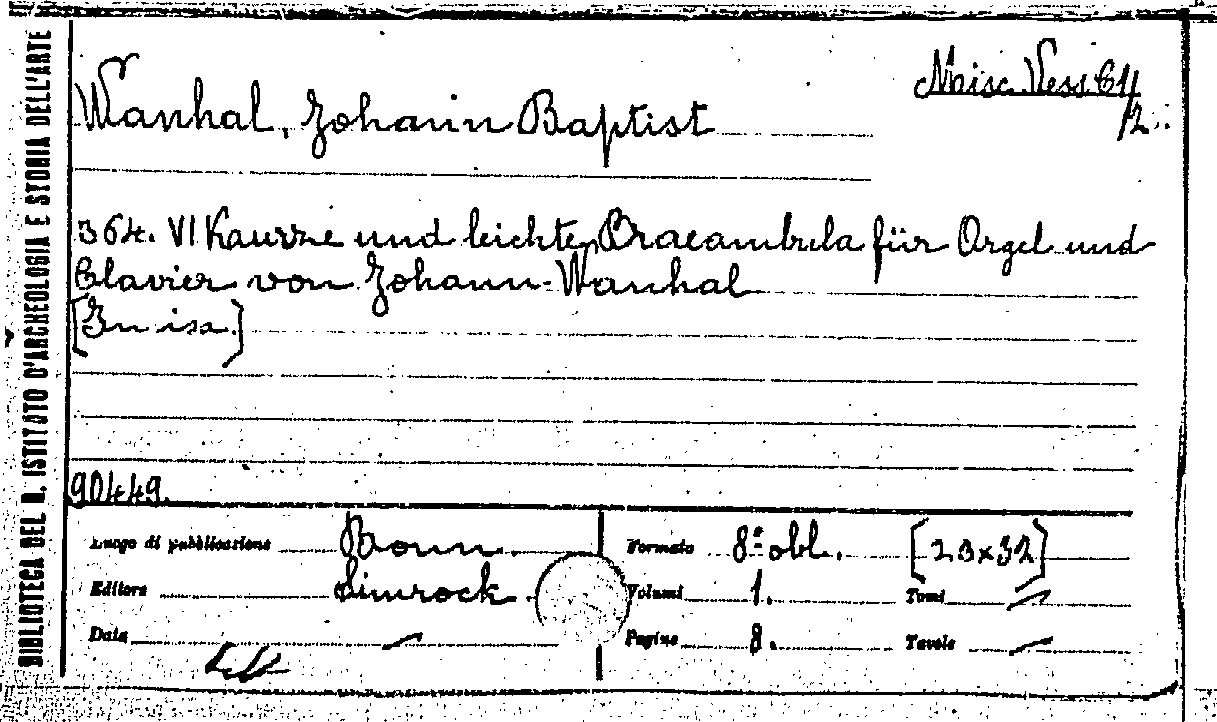 BIBLIOTECA DEL R. ISTITUTO D'ARCHEOLOGIA E STORIA DELL'ARTE
Misc. Vess. 64/2.
Wanhal, Johann Baptist
364. VI Kaurze und leichte Praeambula für Orgel und
Clavier von Johann Wanhal
[In isa.]
90449.
Luogo di pubblicazione Bonn.
Formato 8º obl. [23x32]
Editore Simrock.
Volumi 1. Tomi —
Data —
Pagine 8. Tavole —